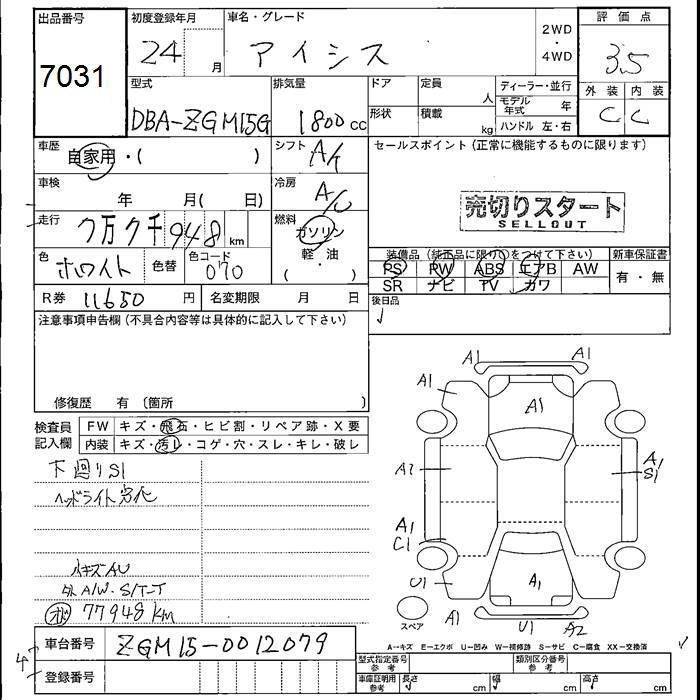 出品番号
7031
初度登録年月
24 月
車名・グレード
アイシス
2WD
・
4WD
評価点
3.5
外装 内装
C C
型式
DBA-ZGM15G
排気量
1800 cc
ドア
定員
人
形状
積載
kg
ディーラー・並行
モデル年式 年
ハンドル 左・右
車歴
自家用・( )
シフト
A/T
セールスポイント (正常に機能するものに限ります)
車検
年 月( 日)
冷房
A/C
売切りスタート
SELLOUT
走行
7万7千948 km
燃料
ガソリン
軽・油
( ・ )
色
ホワイト
色替
色コード
070
装備品 (純正品に限り○をつけて下さい)
PS PW ABS エアB AW
SR ナビ TV カワ
新車保証書
有・無
R券 11650 円
名変期限 月 日
後日品
注意事項申告欄 (不具合内容等は具体的に記入して下さい)
修復歴 有 〔箇所 〕
検査員
記入欄
FW キズ・飛石・ヒビ割・リペア跡・X要
内装 キズ・汚レ・コゲ・穴・スレ・キレ・破レ
下廻りS1
ヘッドライト劣化
小キズAU
外A/W・S/T-T
77948km
A1 A1
A1
A1
A1
A1
S1
A1
C1
U1
A1
A1
U1 A2
スペア
A→キズ E→エクボ U→凹み W→補修跡 S→サビ C→腐食 XX→交換済
車台番号
ZGM15-0012079
登録番号
型式指定番号
参考
類別区分番号
参考
車庫証明用
参考
長さ cm
幅 cm
高さ cm